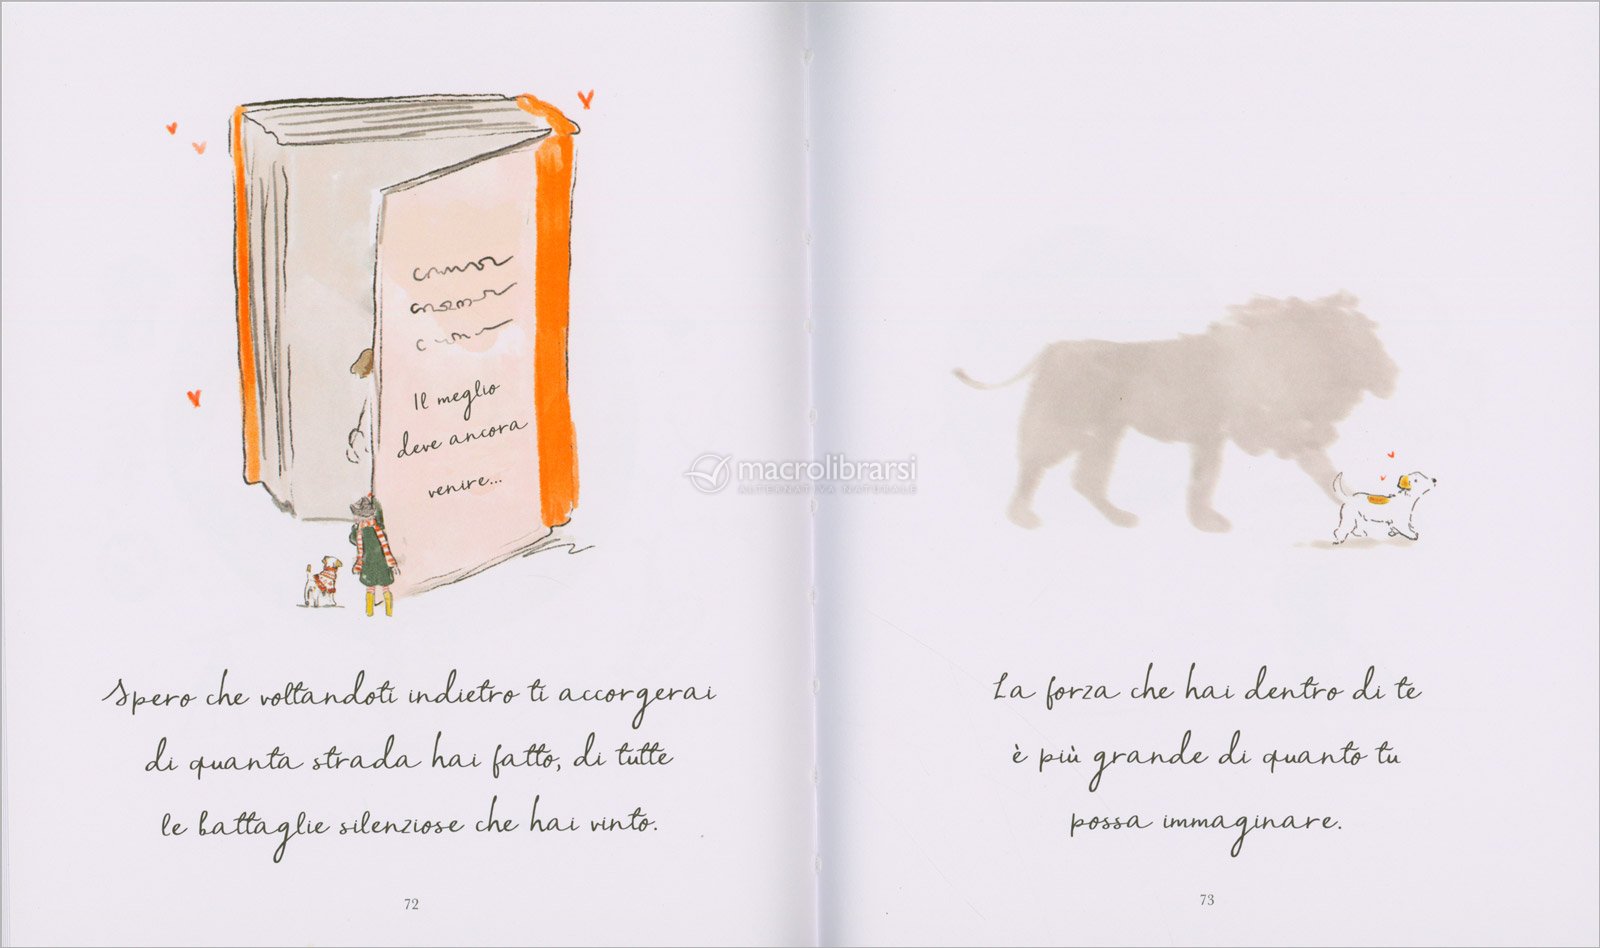 Il meglio
deve ancora
venire...
Spero che voltandoti indietro ti accorgerai
di quanta strada hai fatto, di tutte
le battaglie silenziose che hai vinto.
72
macrolibrarsi
ALTERNATIVA NATURALE
La forza che hai dentro di te
è più grande di quanto tu
possa immaginare.
73